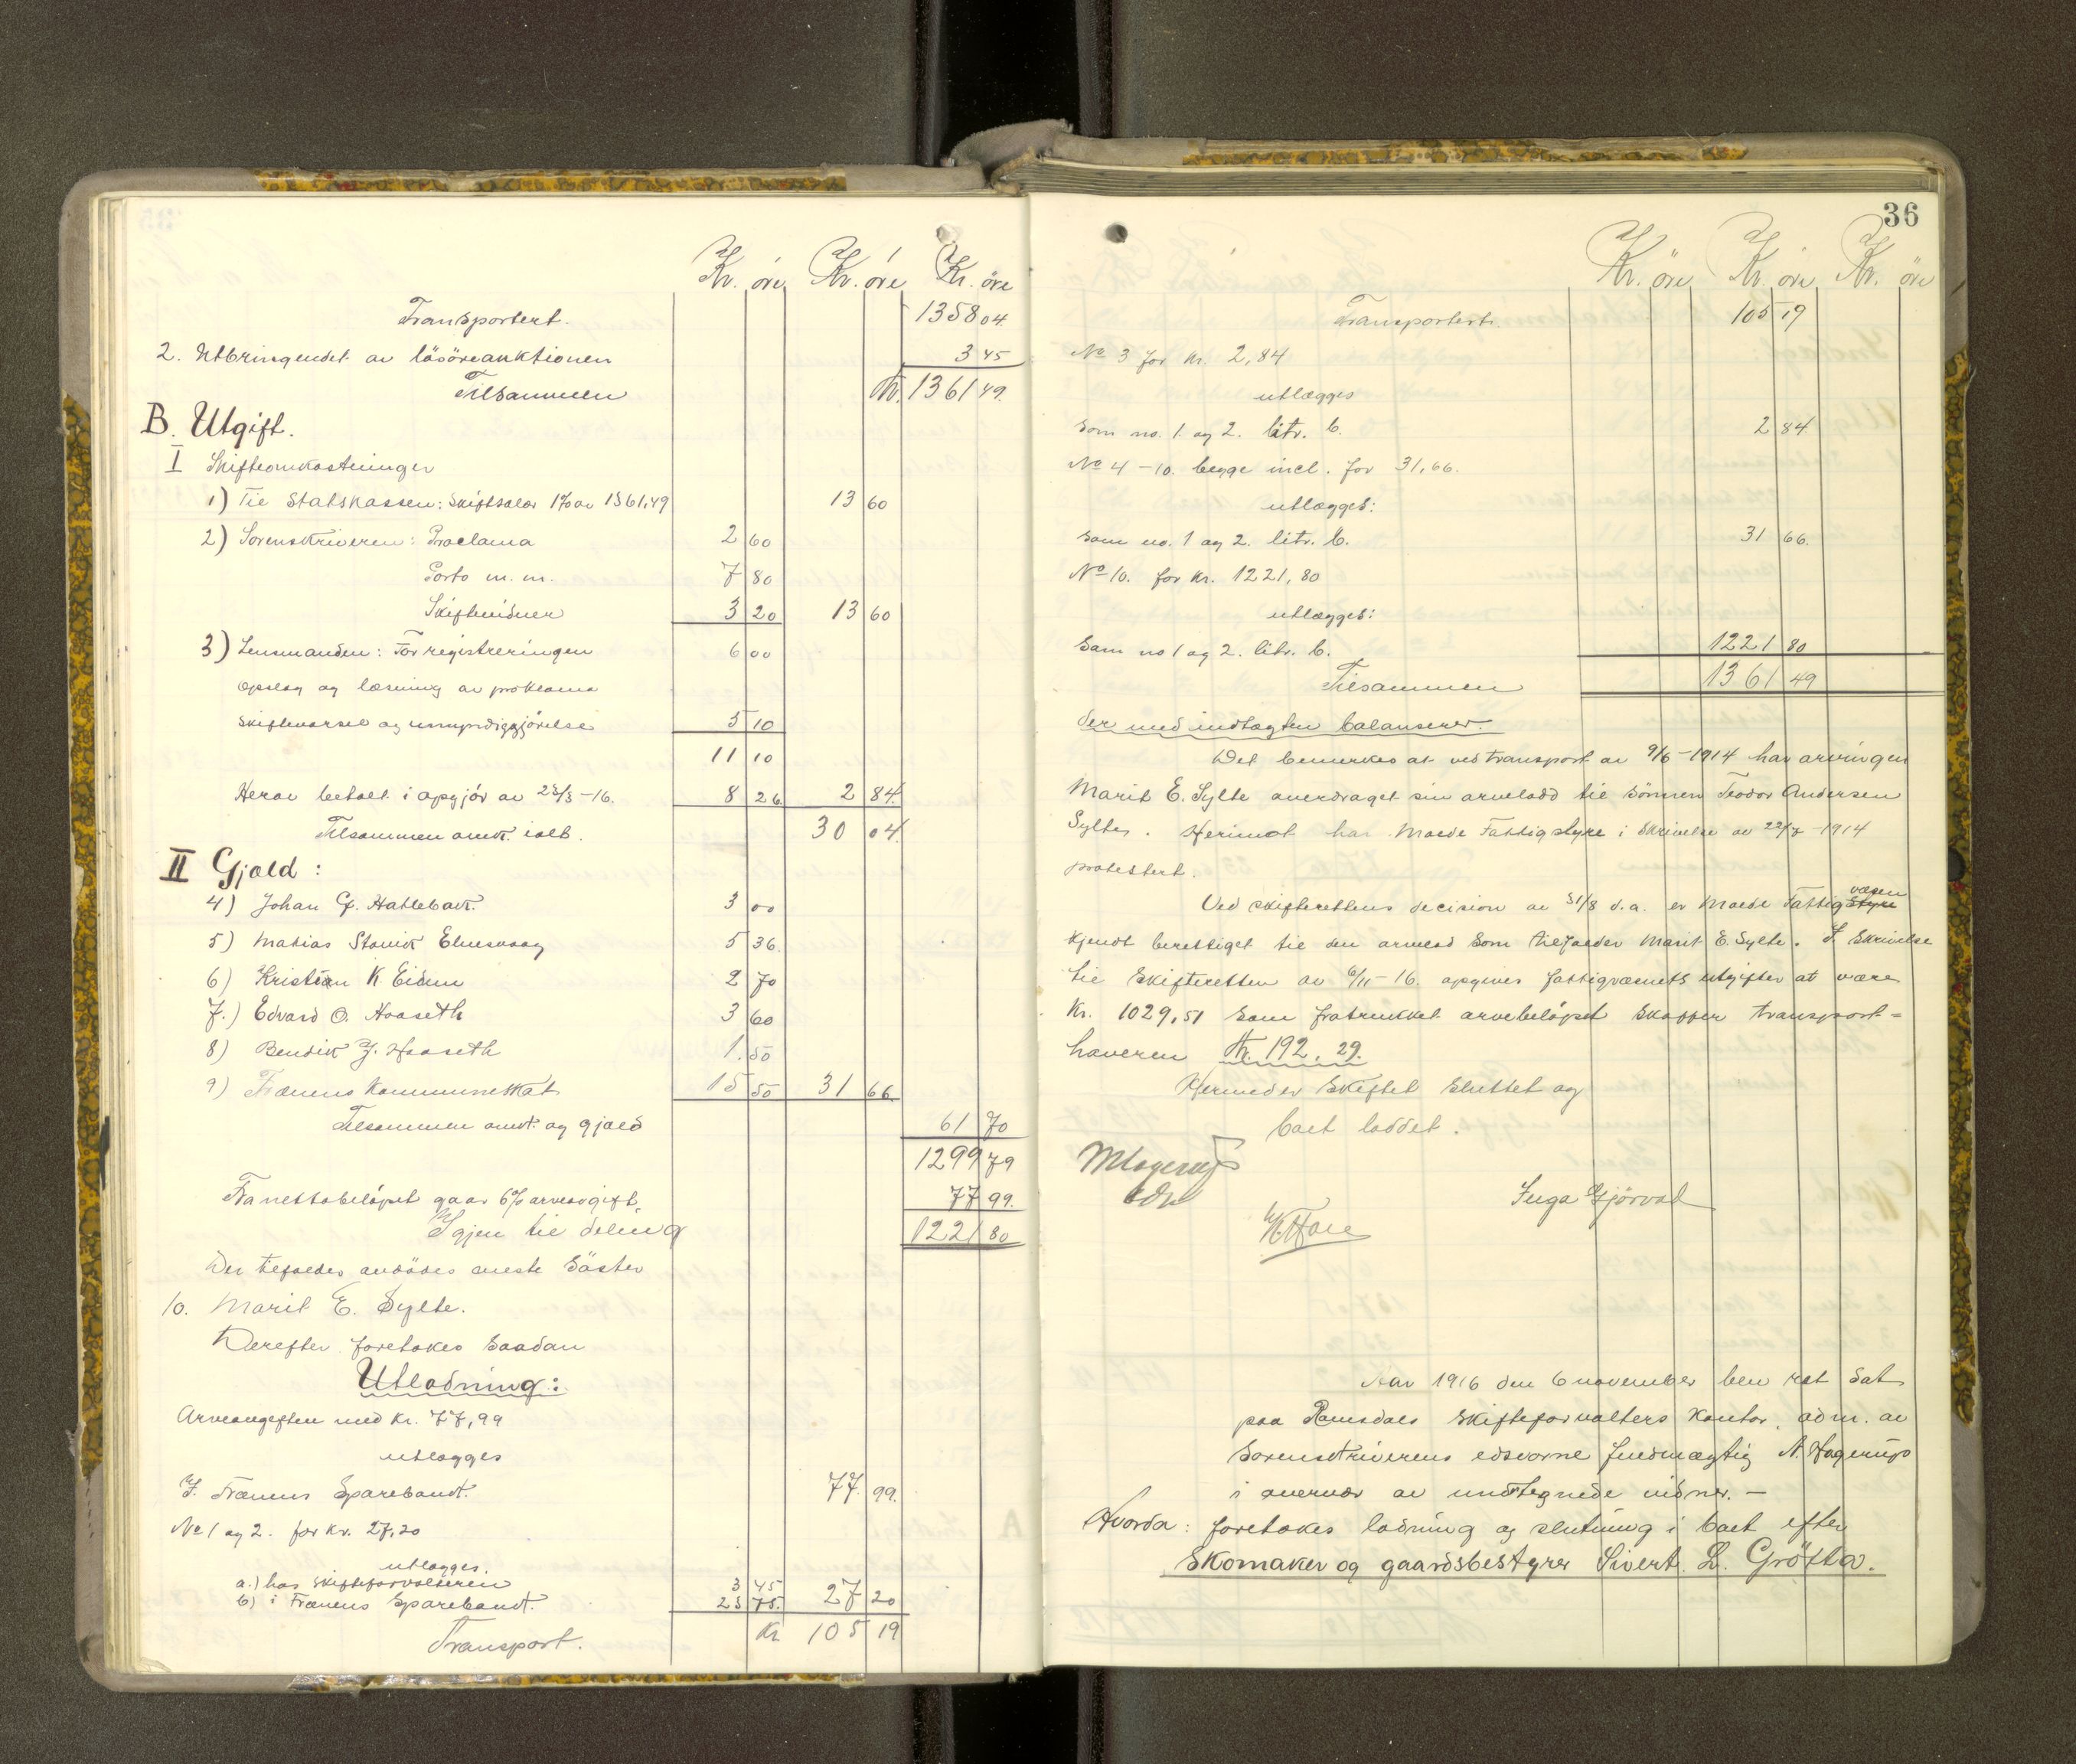 Kr. öre Kr. öre Kr. öre
Transportert. 1358 04.
2. Utbringendet av lösöreauktionen 3 45
Tilsammen Kr. 1361 49.
B. Utgift.
I Skifteomkostninger
1) Til Statskassen: Skiftsalær 1% av 1361,49 13 60
2) Sorenskriveren: Proclama 2 60
Porto m. m. 7 80
Skiftevidner 3 20 13 60
3) Lensmanden: For registreringen 6 00
Opslag og læsning av proklama
Skiftevarsel og umyndiggjörelse 5 10
11 10
Herav betalt i opgjör av 28/3 - 16. 8 26 2 84.
Tilsammen omk. ialt. 30 04.
II Gjæld:
4) Johan G. Hatlebak. 3 00
5) Matias Stavik Elnesvaag 5 36.
6) Kristian K. Eidem 2 70
7.) Edvard O. Haaseth 3 60
8) Bendik J. Haaseth 1. 50
9) Frænens Kommuneskat 15 50 31 66
Tilsammen omk. og gjæld 61 70
1299 79
Fra nettobelöpet gaar 6% arveavgift. 77 99.
Igjen til deling 1221 80
Der tilfaldes avdödes eneste Söster
10. Marit E. Sylte.
Derefter foretokes saadan
Utlodning:
Arveavgiften med kr. 77,99
utlægges
I. Frænens Sparebank. 77. 99.
No 1 og 2. for kr. 27,20
utlægges.
a.) hos skifteforvalteren 3 45
b) i Frænens Sparebank. 23 75. 27 20
Transport. Kr 105 19
36
Kr. öre Kr. öre Kr. öre
Transportert. 105 19
No 3 for kr. 2,84
utlægges
som no. 1 og 2. litr. b. 2 84
No 4 - 10. begge incl. for 31,66.
utlægges:
som no. 1 og 2. litr. b. 31 66.
No 10. for kr. 1221,80
utlægges:
som no 1 og 2. litr. b. 1221 80
Tilsammen 1361 49
der med indtægten balanserer.
Det bemerkes at ved transport av 9/6 - 1914 har arvingen
Marit E. Sylte overdraget sin arvelodd til sönnen Teodor Andersen
Sylte. Herimot har Molde Fattigstyre i skrivelse av 22/7 - 1914
protestert.
Ved skifterettens decision av 31/8 d.a. er Molde Fattigstyre væsen
kjendt berettiget til den arvelod som tilfalder Marit E. Sylte. I skrivelse
til skifteretten av 6/11 - 16. opgives fattigvæsnets utgifter at være
Kr. 1029,51 som fratrukket arvebelöpet skaffer transport=
haveren Kr. 192,29.
Hermed er skiftet sluttet og
boet loddet.
Inga Gjörval
Aar 1916 den 6 november blev ret sat
paa Romsdals skifteforvalters kontor, adm. av
Sorenskriverens edsvorne fuldmægtig N. Hagerup
i overvær av undtegnede vidner. -
Hvorda: foretokes lodning og slutning i boet efter
Skomaker og gaardsbestyrer Sivert L. Gröfta.